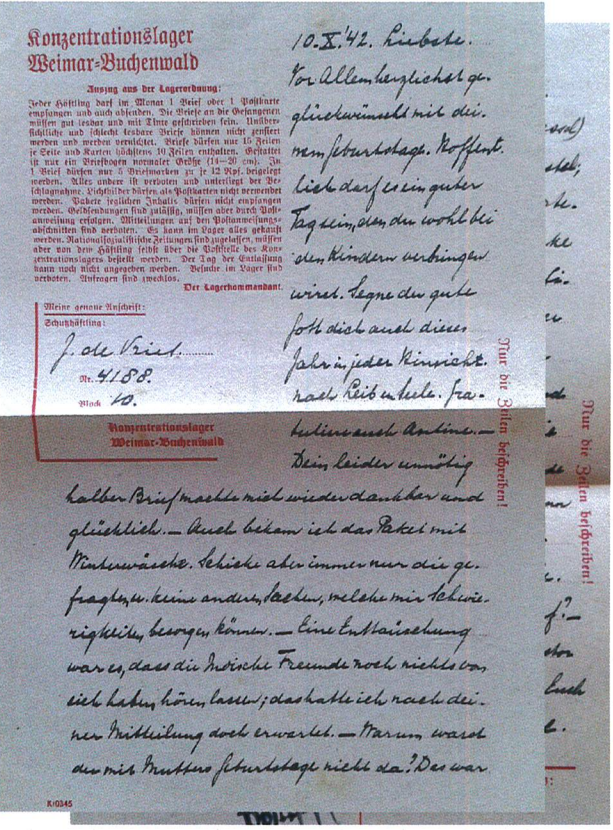 Konzentrationslager
Weimar-Buchenwald
Auszug aus der Lagerordnung:
Jeder Häftling darf im Monat 1 Brief oder 1 Postkarte
empfangen und auch absenden. Die Briefe an die Gefangenen
müssen gut lesbar und mit Tinte geschrieben sein. Unüber-
sichtliche und schlecht lesbare Briefe können nicht zensiert
werden und werden vernichtet. Briefe dürfen nur 15 Zeilen
je Seite und Karten höchstens 10 Zeilen enthalten. Gestattet
ist nur ein Briefbogen normaler Größe (14—20 cm). In
1 Brief dürfen nur 5 Briefmarken zu je 12 Rpf. beigelegt
werden. Alles andere ist verboten und unterliegt der Be-
schlagnahme. Lichtbilder dürfen als Postkarten nicht verwendet
werden. Pakete jeglichen Inhalts dürfen nicht empfangen
werden. Geldsendungen sind zulässig, müssen aber durch Post-
anweisung erfolgen. Mitteilungen auf den Postanweisungs-
abschnitten sind verboten. Es kann im Lager alles gekauft
werden. Nationalsozialistische Zeitungen sind zugelassen, müssen
aber von dem Häftling selbst über die Poststelle des Kon-
zentrationslagers bestellt werden. Der Tag der Entlassung
kann noch nicht angegeben werden. Besuche im Lager sind
verboten. Anfragen sind zwecklos.
Der Lagerkommandant.
Meine genaue Anschrift:
Schutzhäftling:
J. de Vriet
Nr. 4188.
Block 10.
Konzentrationslager
Weimar-Buchenwald
10.X.'42. Liebste.
Vor Allem herzlichst ge-
glückwünscht mit dei-
nem Geburtstage. Hoffent-
lich darf es ein guter
Tag sein, den du wohl bei
den Kindern verbringen
wirst. Segne der gute
Gott dich auch dieses
Jahr in jeder Hinsicht.
nach Leib en Seele. Gra-
tuliere auch Antine. —
Dein leider unnötig
halber Brief machte mich wieder dankbar und
glücklich. — Auch bekam ich das Paket mit
Winterwäsche. Schicke aber immer nur die ge-
fragte, u. keine anderen Sachen, welche mir Schwie-
rigkeiten besorgen können. — Eine Enttäuschung
war es, dass die Indische Freunde noch nichts von
sich haben hören lassen; das hatte ich nach dei-
ner Mitteilung doch erwartet. — Warum warst
du mit Mutters Geburtstage nicht da? Das war
Nur die Zeilen beschreiben!
K/0345
Nur die Zeilen beschreiben!